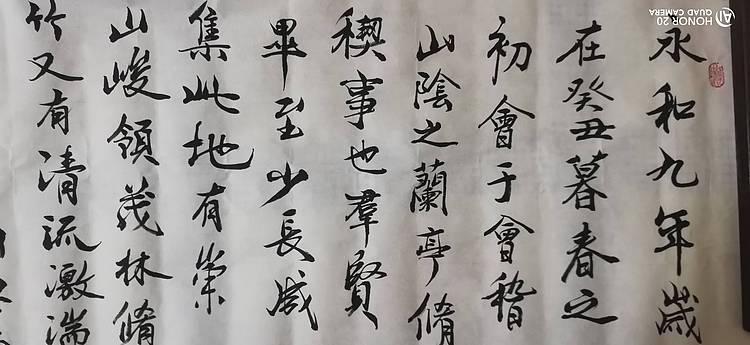 永和九年歲
在癸丑暮春之
初會于會稽
山陰之蘭亭脩
稧事也羣賢
畢至少長咸
集此地有崇
山峻領茂林脩
竹又有清流激湍
HONOR 20
AI QUAD CAMERA